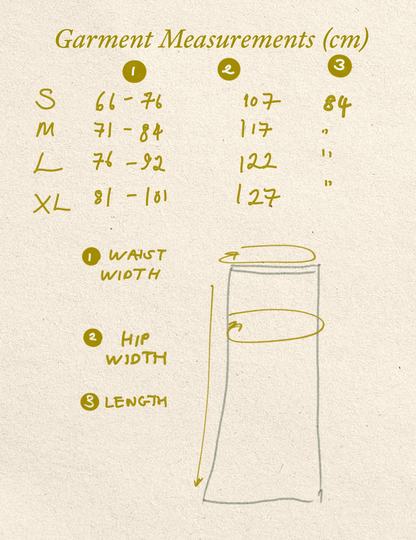 Garment Measurements (cm)
1 2 3
S 66 - 76 107 84
M 71 - 84 117 "
L 76 - 92 122 "
XL 81 - 101 127 "
1 WAIST
WIDTH
2 HIP
WIDTH
3 LENGTH